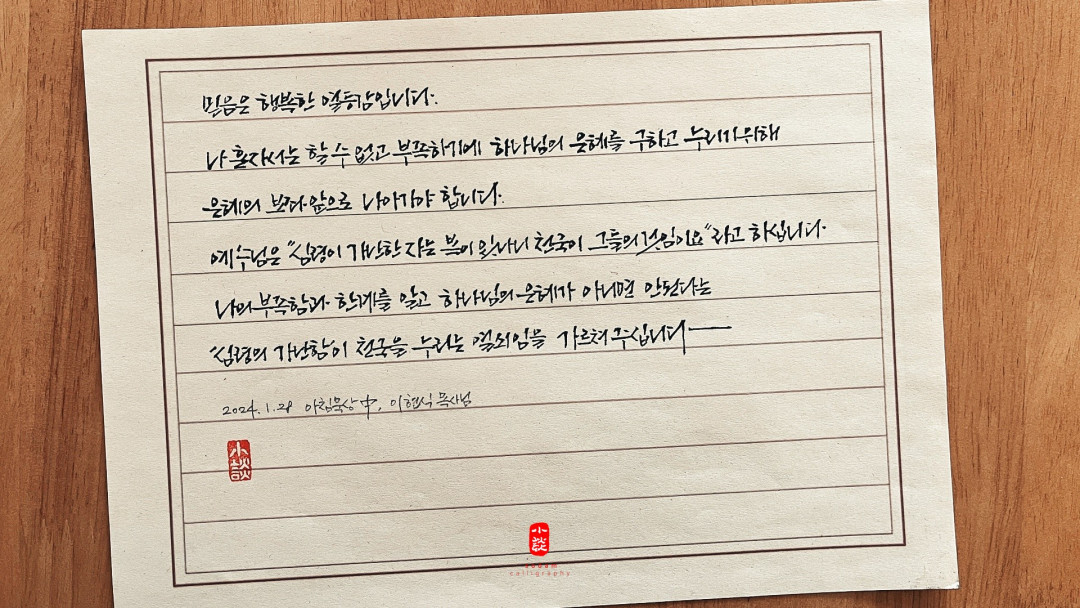 믿음은 행복한 열등감입니다.
나 혼자서는 할 수 없고 부족하기에 하나님의 은혜를 구하고 누리기 위해
은혜의 보좌 앞으로 나아가야 합니다.
예수님은 "심령이 가난한 자는 복이 있나니 천국이 그들의 것임이요"라고 하십니다.
나의 부족함과 한계를 알고 하나님의 은혜가 아니면 안된다는
'심령의 가난함'이 천국을 누리는 열쇠임을 가르쳐 주십니다
2024. 1. 28 아침묵상 中, 이현식 목사님
小談
小談
calligraphy